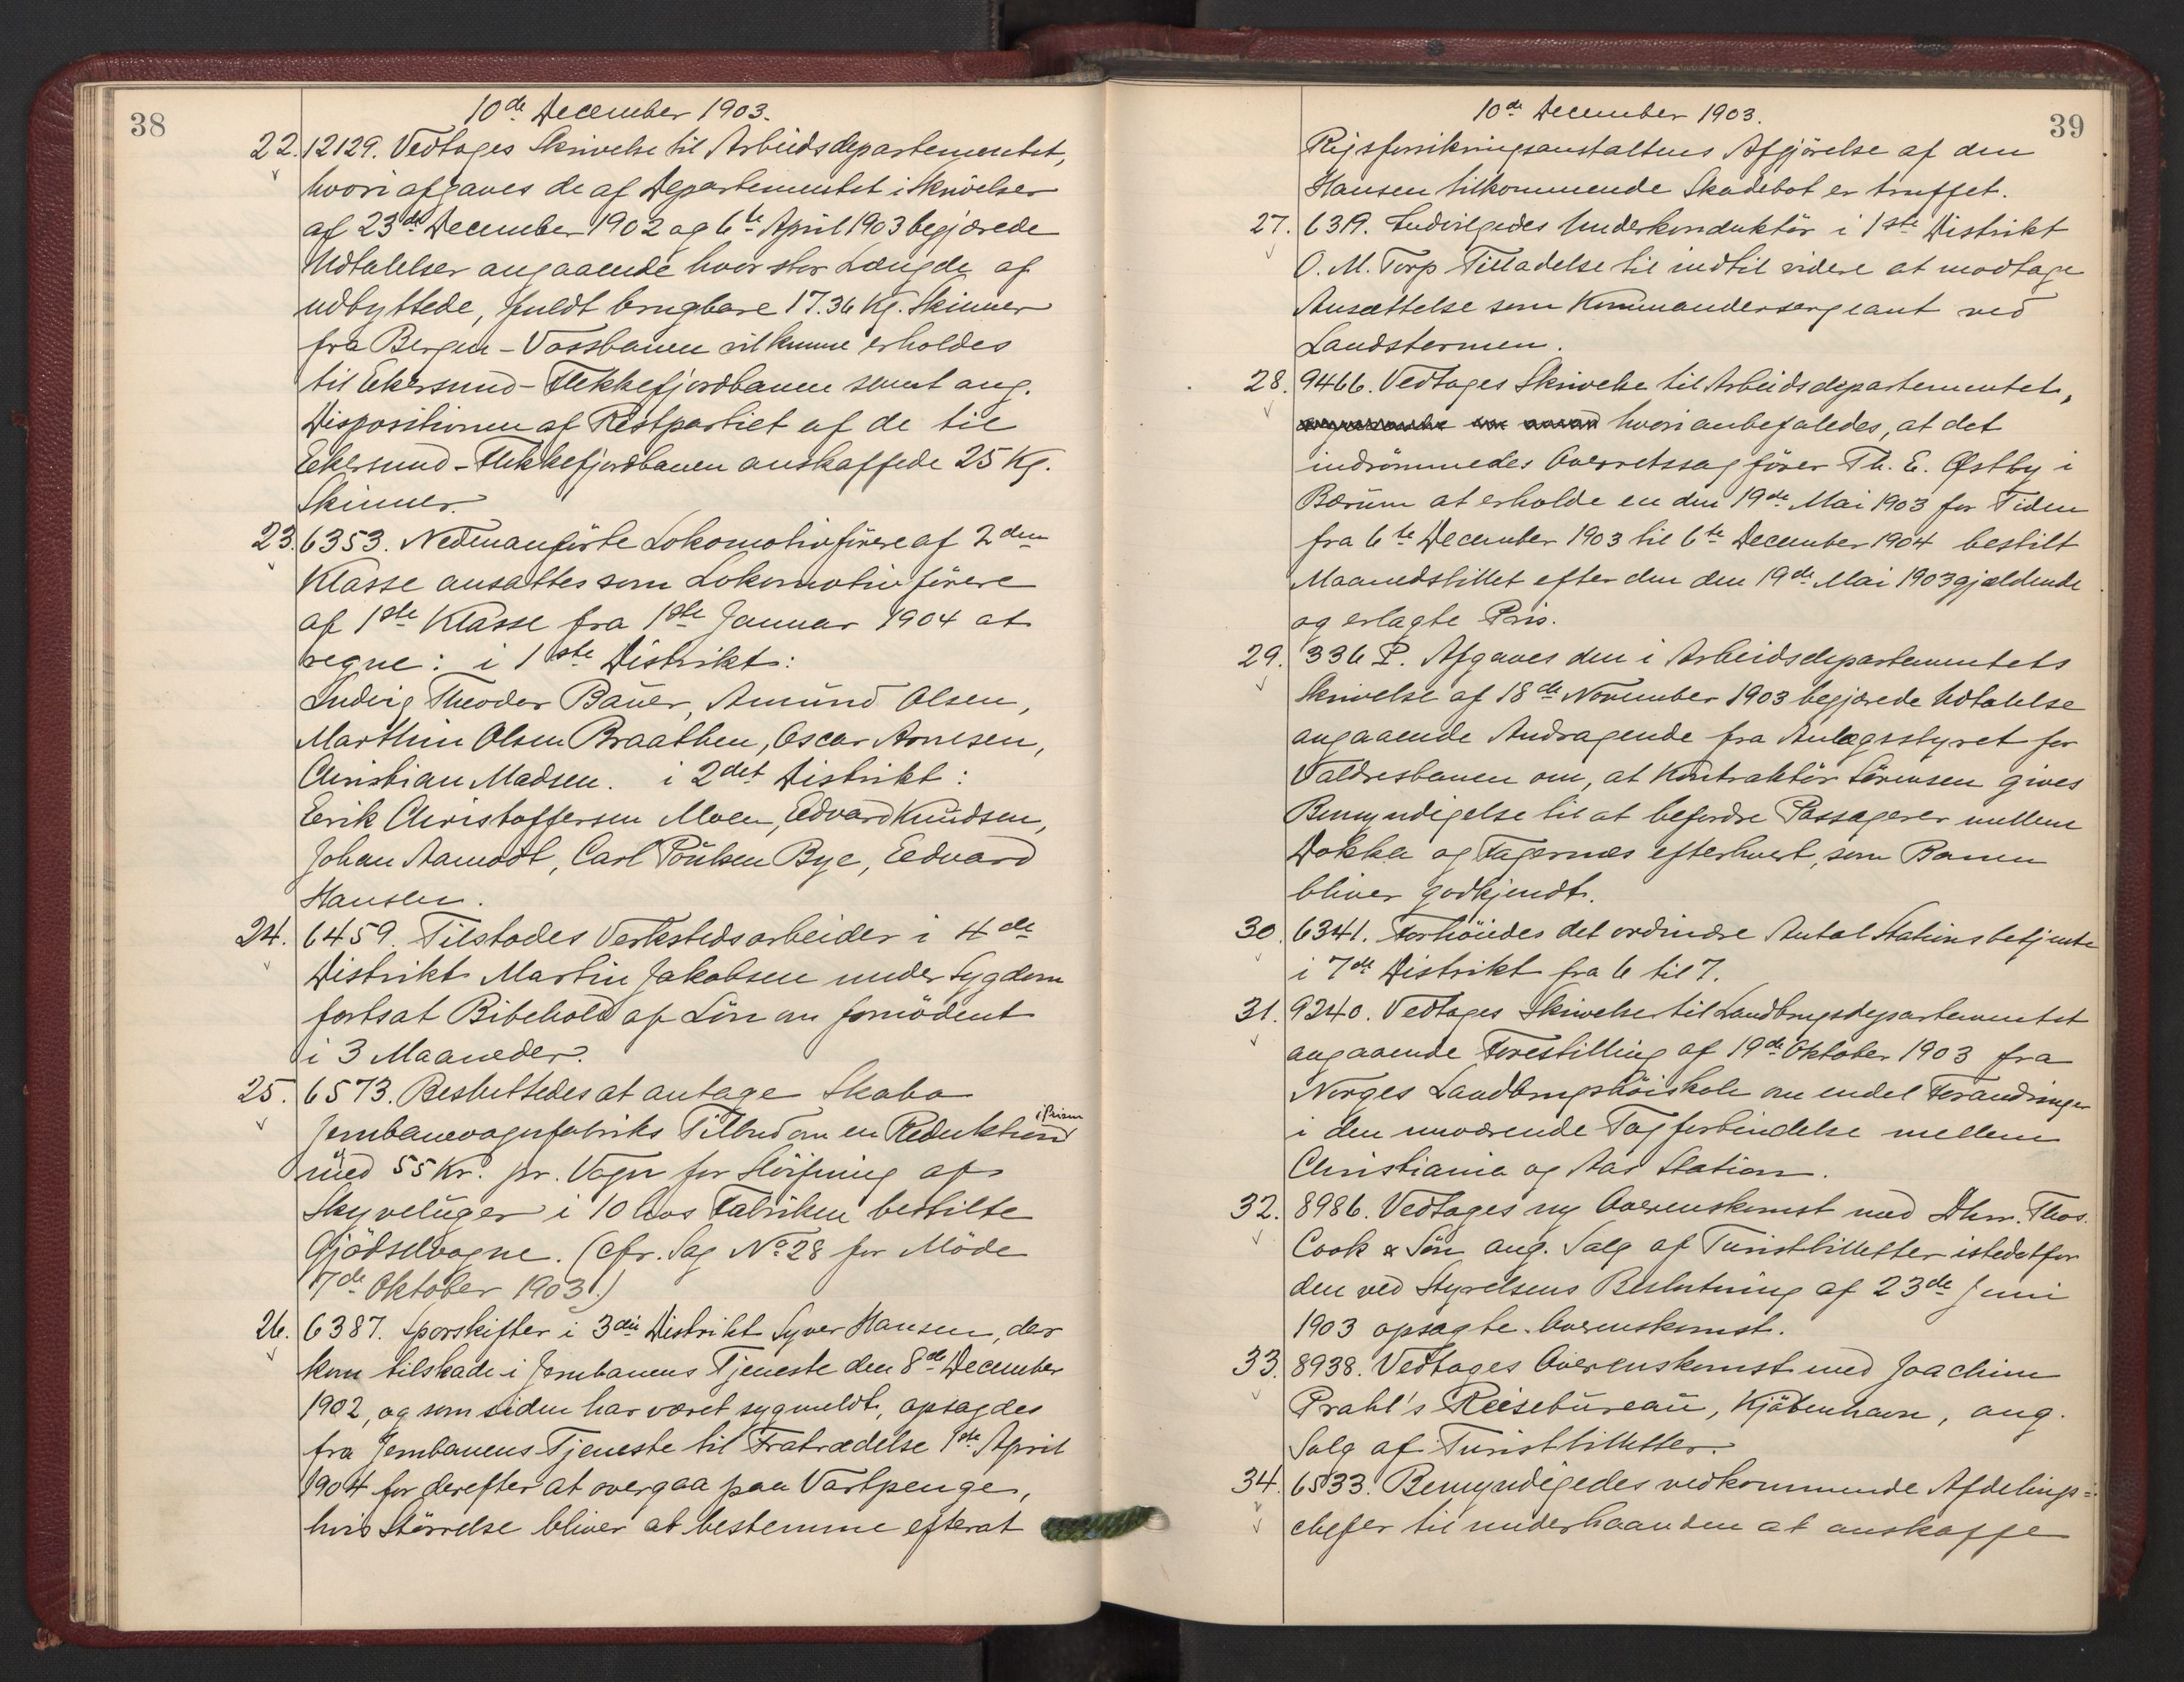 38
10de December 1903.
22. 12129. Vedtoges Skrivelse til Arbeidsdepartementet,
hvori afgaves de af Departementet i Skrivelser
af 23de December 1902 og 6te April 1903 begjærede
Udtalelser angaaende hvor stor Længde af
udbyttede, fuldt brugbare 17.36 Kg. Skinner
fra Bergen-Vossbanen vil kunne erholdes
til Ekersund-Flekkefjordbanen samt ang.
Dispositionen af Restpartiet af de til
Ekersund-Flekkefjordbanen anskaffede 25 Kg.
Skinner.
23. 6353. Nedenanførte Lokomotivførere af 2den
Klasse ansattes som Lokomotivførere
af 1ste Klasse fra 1ste Januar 1904 at
regne: i 1ste Distrikt:
Ludvig Theodor Bauer, Amund Olsen,
Marthin Olsen Braathen, Oscar Arnesen,
Christian Madsen. i 2det Distrikt:
Eerik Christoffersen Moen, Edvard Knudsen,
Johan Aamodt, Carl Poulsen Bye, Eedvard
Hansen.
24. 6459. Tilstodes Verkstedsarbeider i 4de
Distrikt Martin Jakobsen under Sygdom
fortsat Bibehold af Løn om fornødent
i 3 Maaneder.
25. 6573. Besluttedes at antage Skabo
Jernbanevognfabriks Tilbud om en Reduktion i Prisen
med 55 Kr. pr. Vogn for Sløifning af
Skyveluger i 10 hos Fabriken bestilte
Gjødselvogne. (cfr. Sag No 28 for Møde
7de Oktober 1903.)
26. 6387. Sporskifter i 3die Distrikt Syver Hansen, der
kom tilskade i Jernbanens Tjeneste den 8de December
1902, og som siden har været sygmeldt, opsagdes
fra Jernbanens Tjeneste til Fratrædelse 1ste April
1904 for derefter at overgaa paa Vartpenge,
hvis Størrelse bliver at bestemme efterat
39
10de December 1903.
Rigsforsikringsanstaltens Afgjørelse af den
Hansen tilkommende Skadebot er truffet.
27. 6319. Indvilgedes Underkonduktør i 1ste Distrikt
O. M. Torp Tilladelse til indtil videre at modtage
Ansættelse som Kommandersergeant ved
Landstormen.
28. 9466. Vedtoges Skrivelse til Arbeidsdepartementet,
hvori anbefaledes, at det
indrømmedes Overretssagfører Th. E. Østby i
Bærum at erholde en den 19de Mai 1903 for Tiden
fra 6te December 1903 til 6te December 1904 bestilt
Maanedsbillet efter den den 19de Mai 1903 gjældende
og erlagte Pris.
29. 336 P. Afgaves den i Arbeidsdepartementets
Skrivelse af 18de November 1903 begjærede Udtalelse
angaaende Andragende fra Anlægsstyret for
Valdresbanen om, at Kontraktør Sørensen gives
Bemyndigelse til at befordre Passagerer mellem
Dokka og Fagernæs efterhvert, som Banen
bliver godkjendt.
30. 6341. Forhøiedes det ordinære Antal Stationsbetjente
i 7de Distrikt fra 6 til 7.
31. 9240. Vedtoges Skrivelse til Landbrugsdepartementet
angaaende Forestilling af 19de Oktober 1903 fra
Norges Landbrugshøiskole om endel Forandringer
i den nuværende Togforbindelse mellem
Christiania og Aas Station.
32. 8986. Vedtoges ny Overenskomst med Dhrr. Thos.
Cook & Søn ang. Salg af Turistbilletter istedetfor
den ved Styrelsens Beslutning af 23de Juni
1903 opsagte Overenskomst.
33. 8938. Vedtoges Overenskomst med Joachim
Prahl's Reisebureau, Kjøbenhavn, ang.
Salg af Turistbilletter.
34. 6533. Bemyndigedes vedkommende Afdelings=
chefer til underhaanden at anskaffe